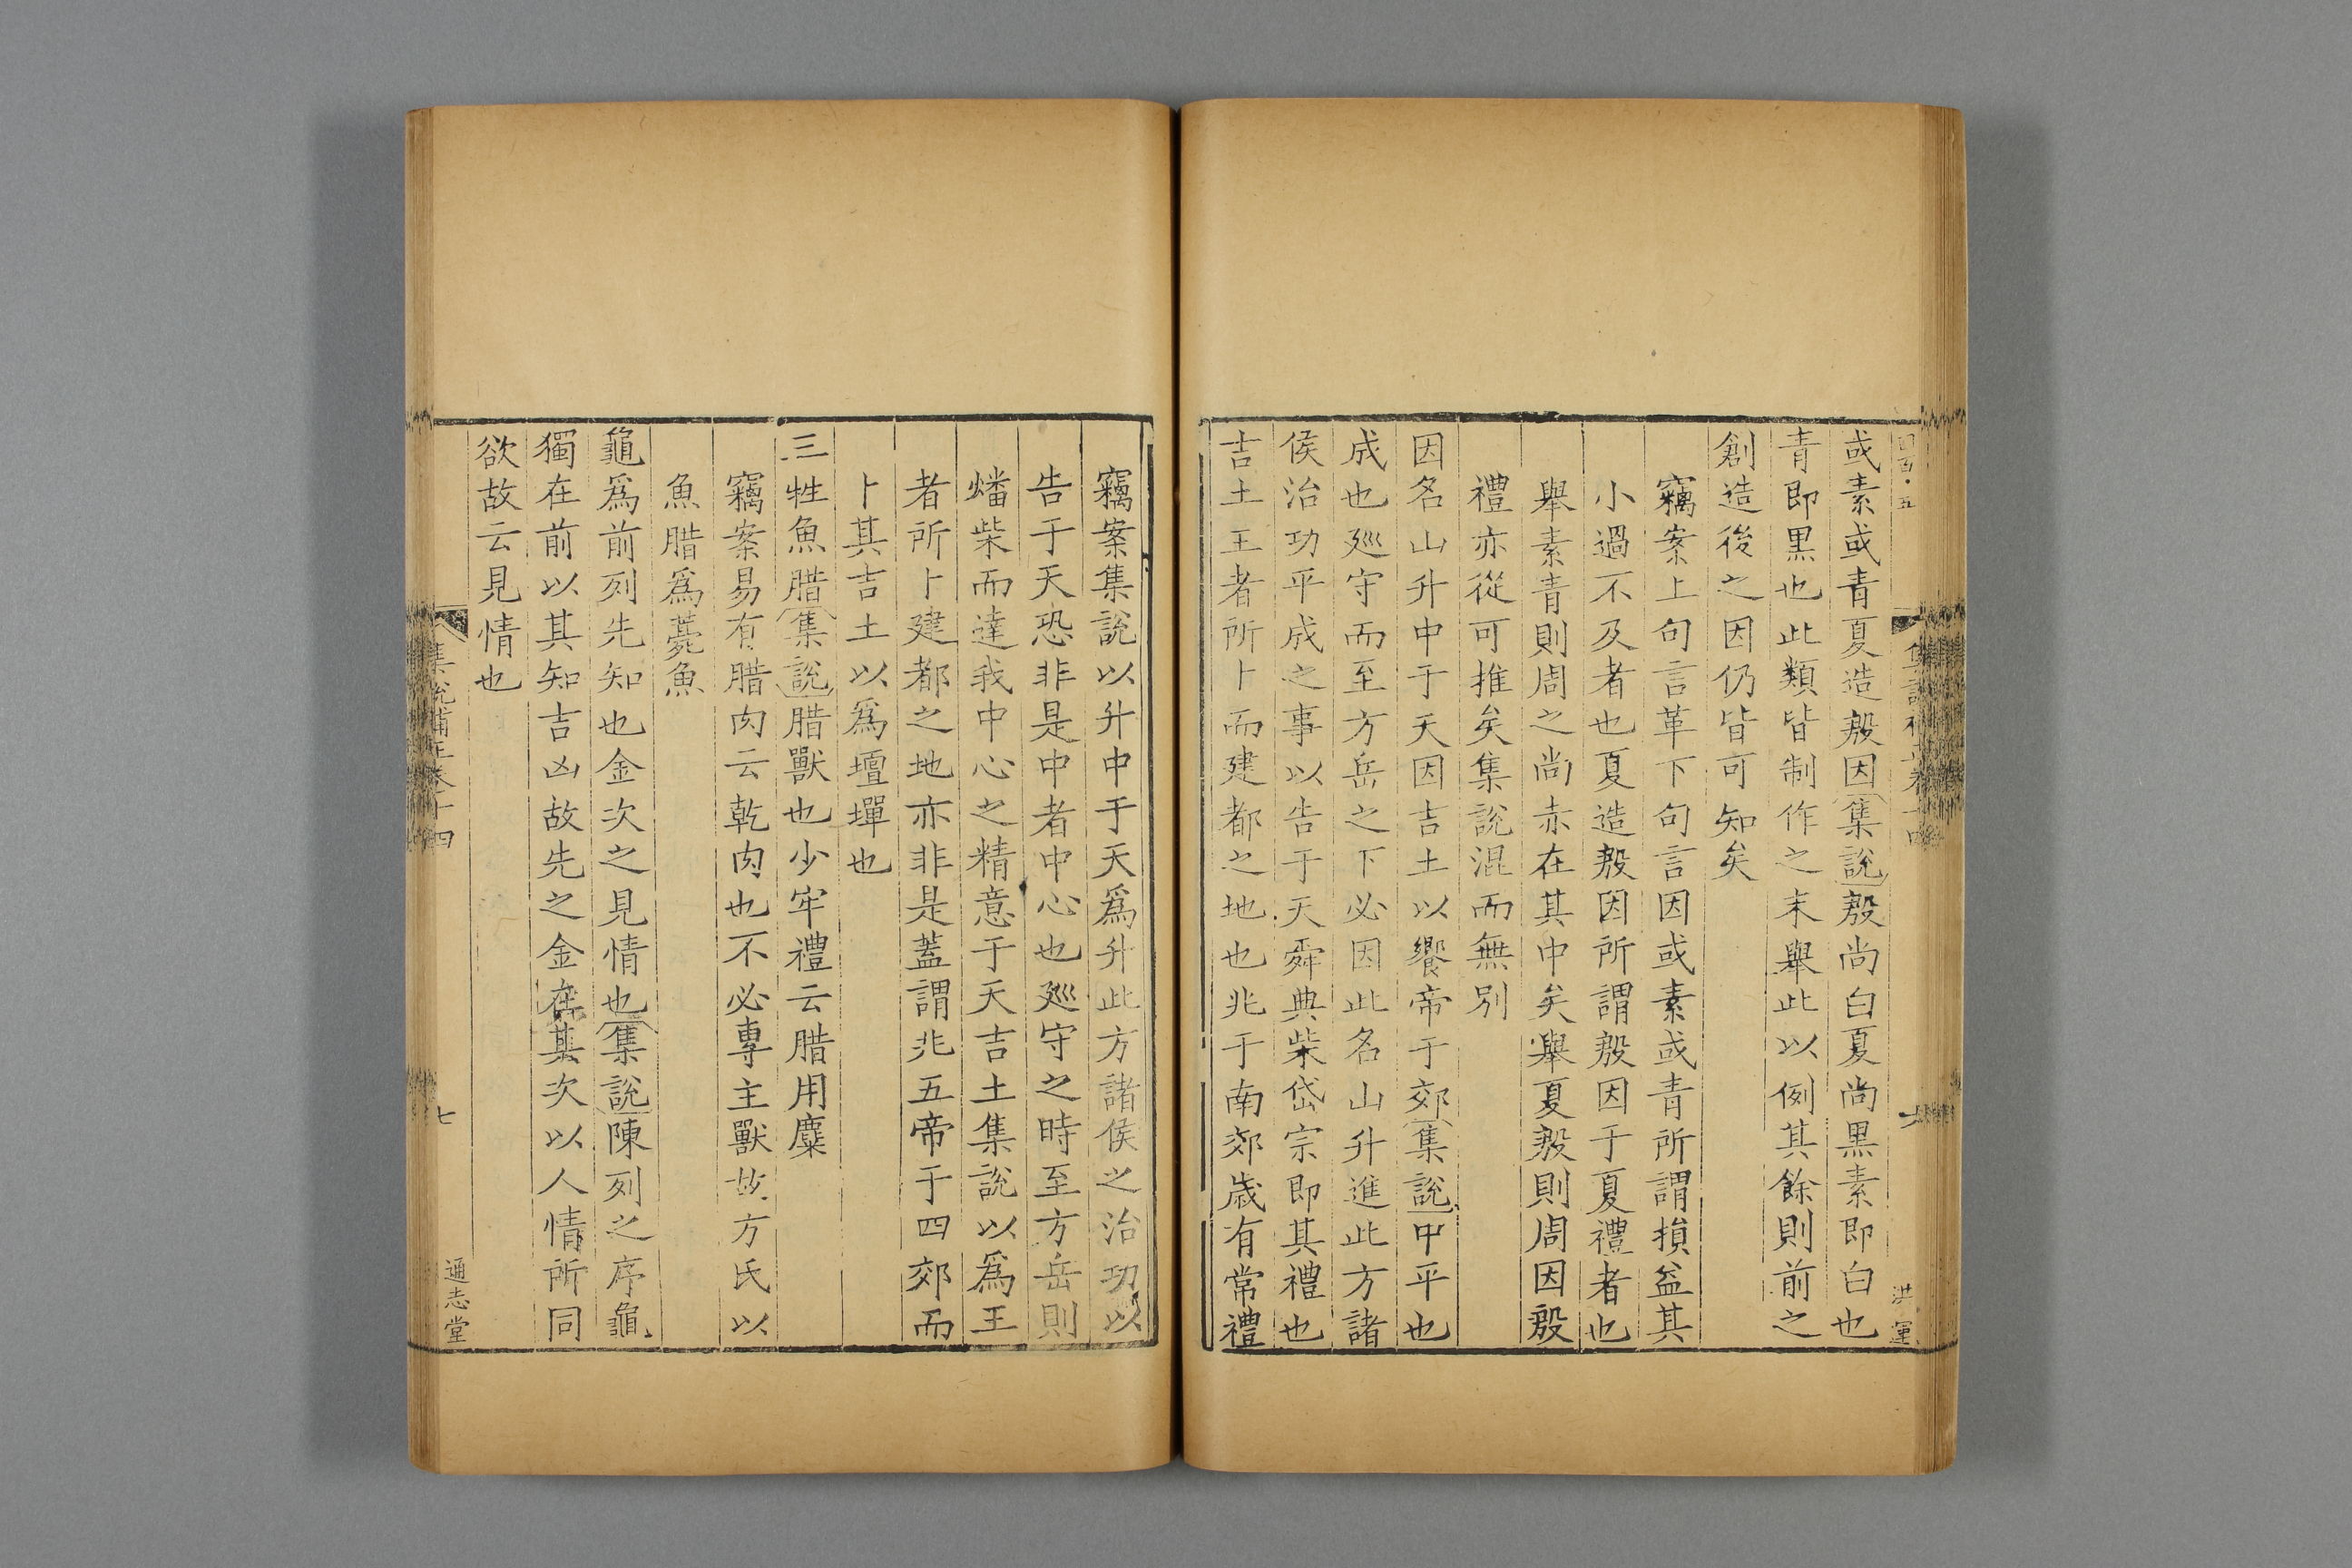 或素或青夏造殷因集說殷尚白夏尚黑素即白也
青即黑也此類皆制作之末舉此以例其餘則前之
創造後之因仍皆可知矣
竊案上句言革下句言因或素或青所謂損益其
小過不及者也夏造殷因所謂殷因于夏禮者也
舉素青則周之尚赤在其中矣舉夏殷則周因殷
禮亦從可推矣集說混而無別
因名山升中于天因吉土以饗帝于郊集說中平也
成也廵守而至方岳之下必因此名山升進此方諸
侯治功平成之事以告于天舜典柴岱宗即其禮也
吉土王者所卜而建都之地也兆于南郊歲有常禮
竊案集說以升中于天爲升此方諸侯之治功以
告于天恐非是中者中心也廵守之時至方岳則
燔柴而達我中心之精意于天吉土集說以爲王
者所卜建都之地亦非是蓋謂兆五帝于四郊而
卜其吉土以爲壇墠也
三牲魚腊集說腊獸也少牢禮云腊用麋
竊案易有腊肉云乾肉也不必專主獸故方氏以
魚腊爲薨魚
龜爲前列先知也金次之見情也集說陳列之序龜
獨在前以其知吉凶故先之金在其次以人情所同
欲故云見情也
集說補正卷十四
七
通志堂